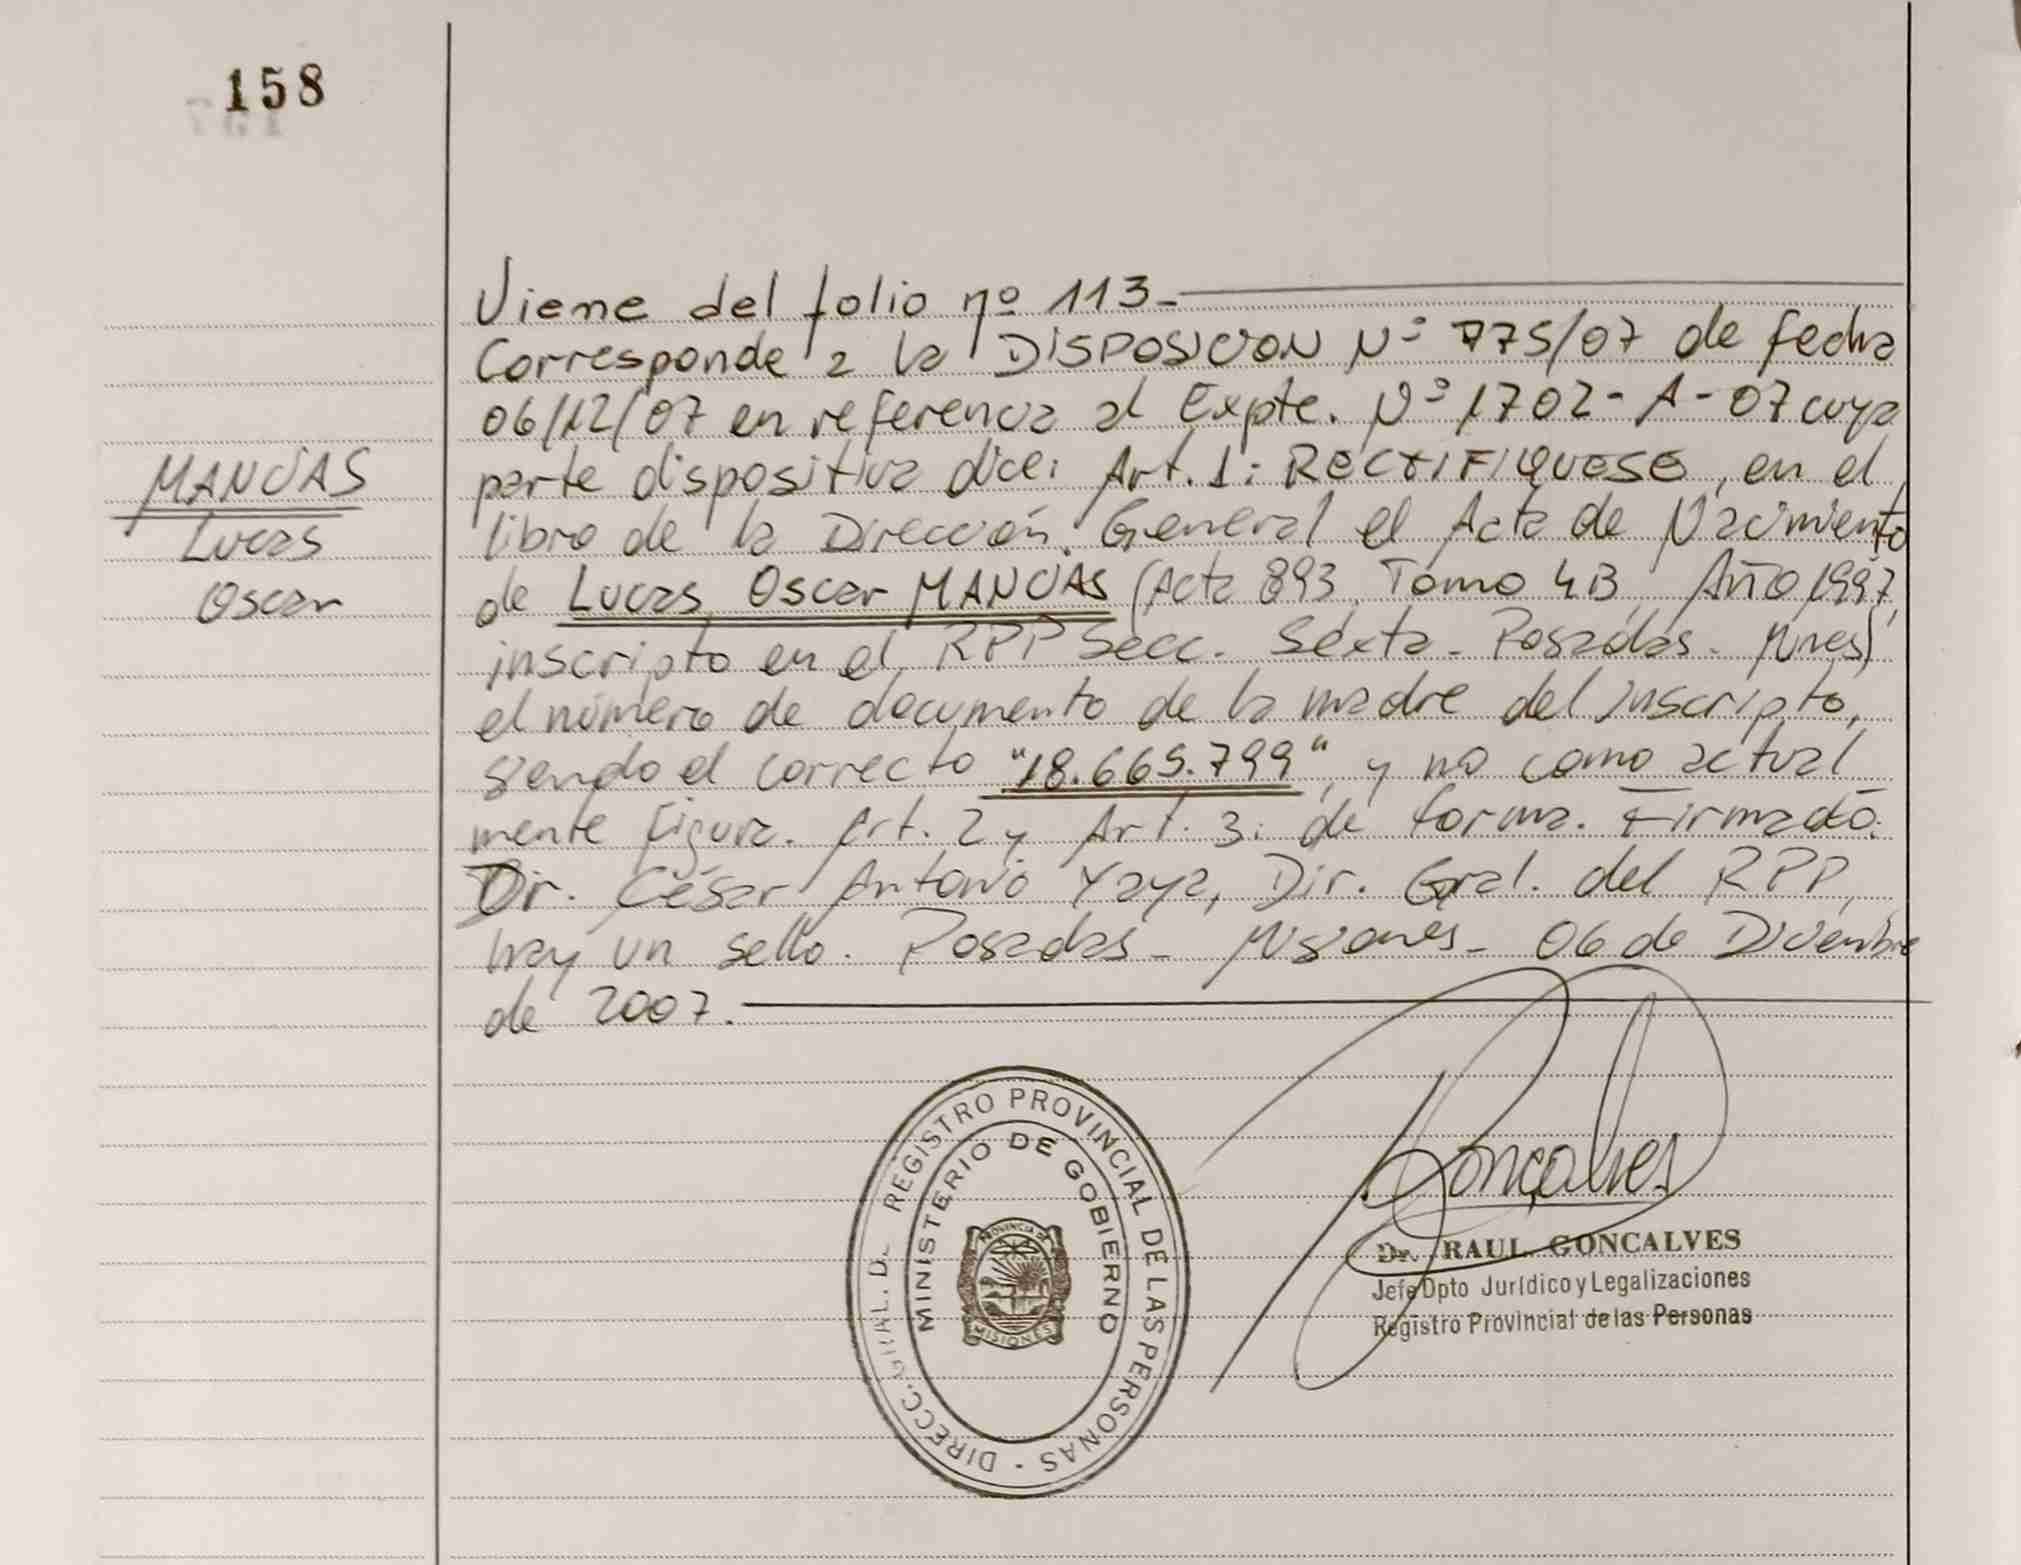 158
Viene del folio nº 113_
Corresponde a la DISPOSICION Nº 775/07 de fecha
06/12/07 en referencia al Expte. Nº 1702-A-07 cuya
parte dispositiva dice: Art. 1: RECTIFIQUESE, en el
libro de la Dirección General el Acta de Nacimiento
de Lucas Oscar MANCIAS (Acta 893, Tomo 4B, Año 1997,
inscripto en el RPP Secc. Sexta - Posadas - Mnes)
el número de documento de la madre del inscripto,
siendo el correcto "18.665.799", y no como actual
mente figura. Art. 2 y Art. 3: de forma. Firmado:
Dr. César Antonio Yaya, Dir. Gral. del RPP,
hay un sello. Posadas - Misiones - 06 de Diciembre
de 2007.
MANCIAS
Lucas
Oscar
REGISTRO PROVINCIAL DE LAS PERSONAS - DIRECC. GRAL. D
MINISTERIO DE GOBIERNO
PROVINCIA
MISIONES
Gonçalves
Dr. RAUL GONCALVES
Jefe Dpto Jurídico y Legalizaciones
Registro Provincial de las Personas